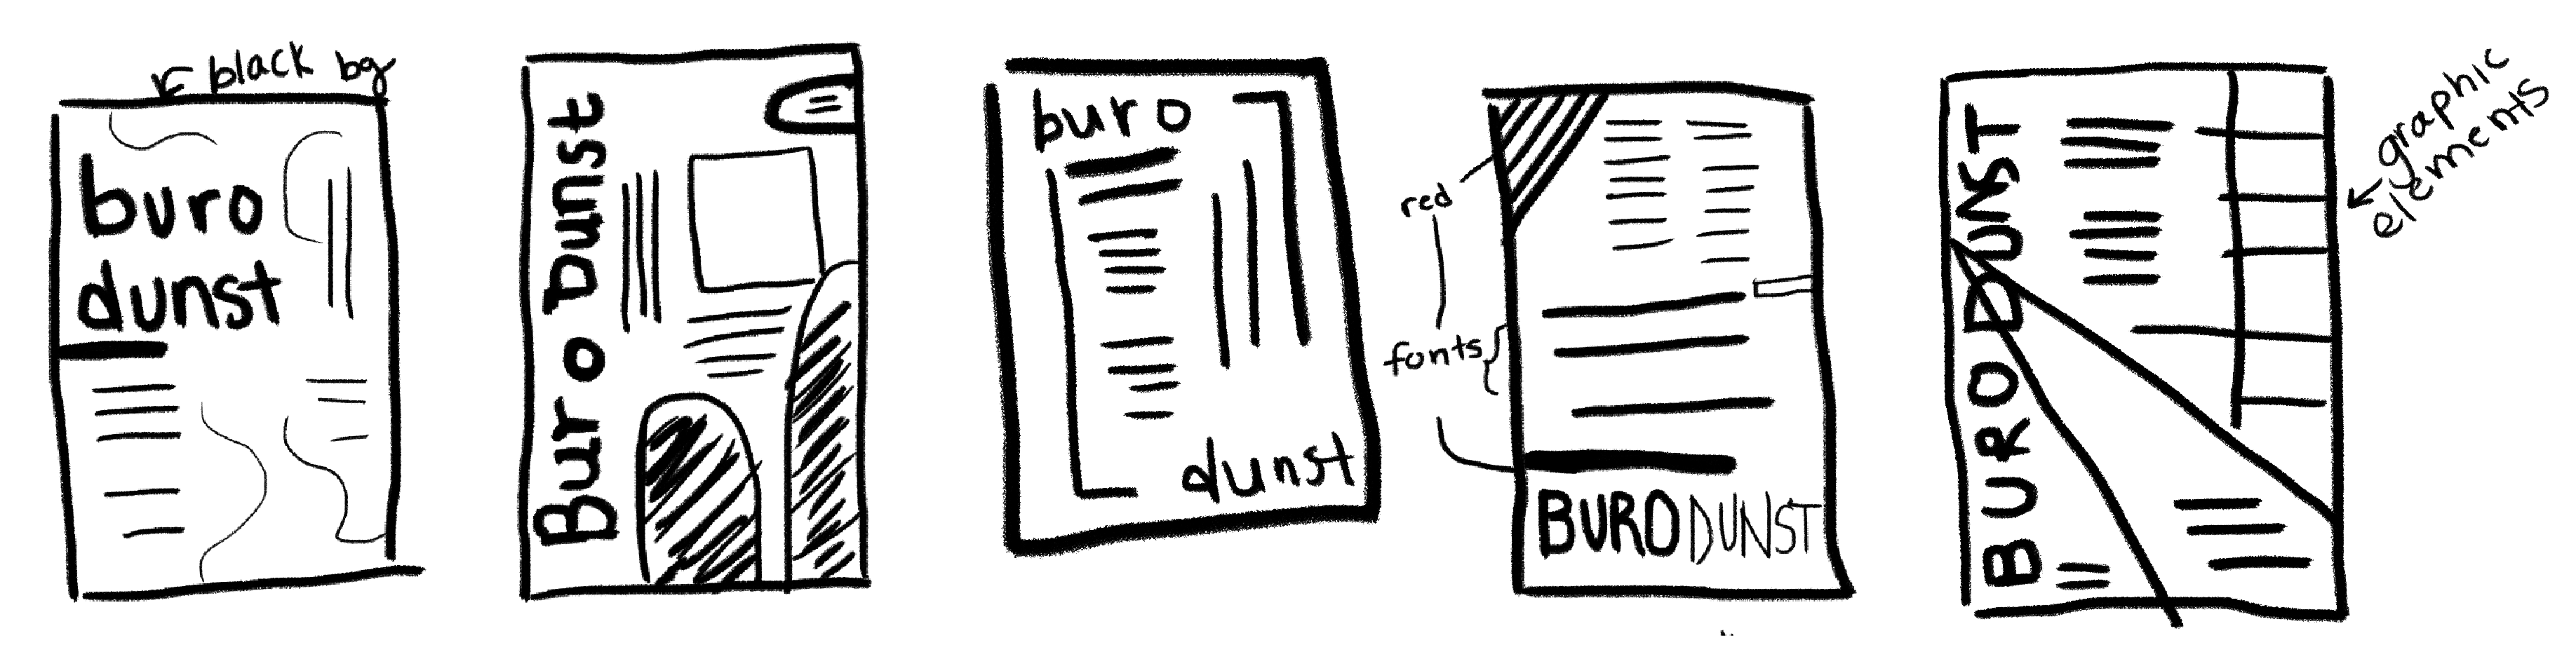 black bg
buro
dunst
Buro Dunst
buro
dunst
red
fonts
BURO DUNST
BURO DUNST
graphic
elements